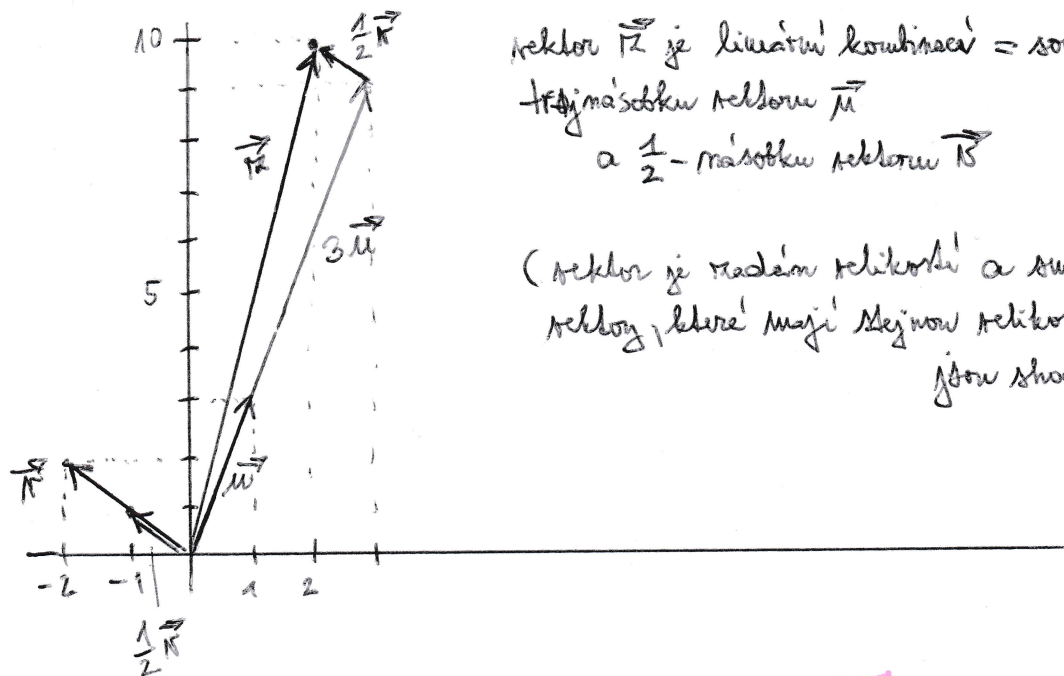 10
½ v⃗
z⃗
3 u⃗
5
v⃗
u⃗
-2 -1 1 2
½ v⃗
vektor z⃗ je lineární kombinací = so
trojnásobku vektoru u⃗
a ½ - násobku vektoru v⃗
(vektor je zadán velikostí a sm
vektory, které mají stejnou veliko
jsou sho